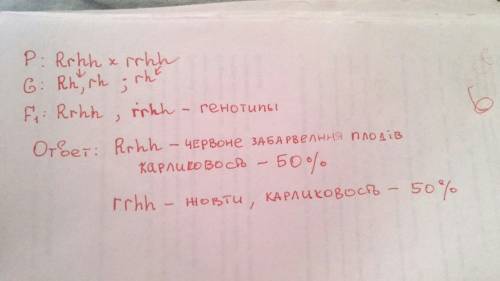 P: Rrhh × rrhh
G: Rh, rh ; rh
F₁: Rrhh , rrhh – генотипы
Ответ: Rrhh – червоне забарвелння плодів
карликовость – 50%
rrhh – жовти, карликовость – 50%